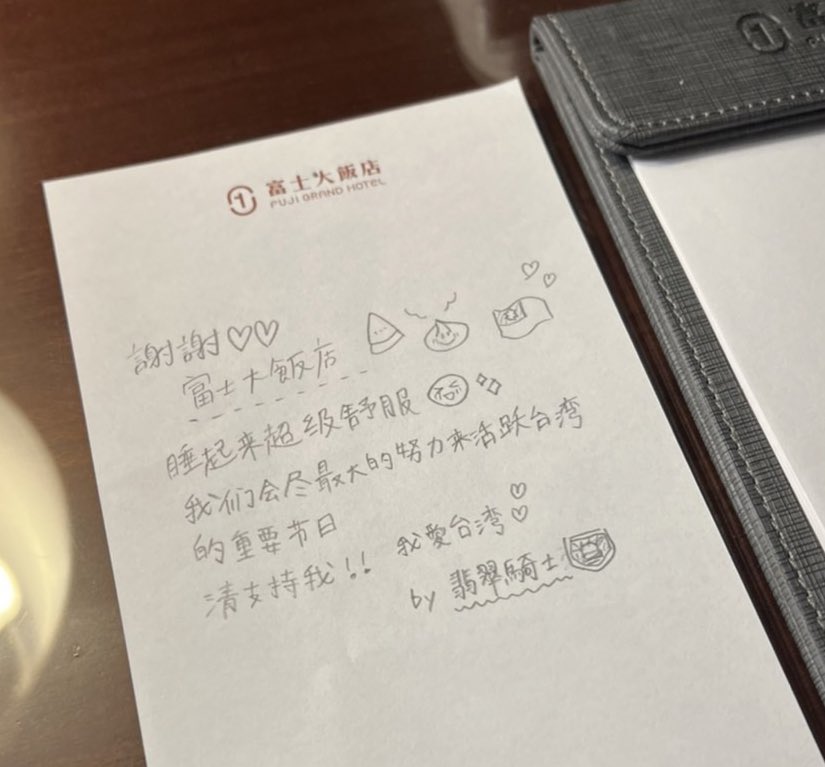 富士大飯店
FUJI GRAND HOTEL
謝謝♡♡
富士大飯店
睡起来超级舒服
我们会尽最大的努力来活跃台湾
的重要节日
清支持我!!
我愛台湾
by 翡翠騎士